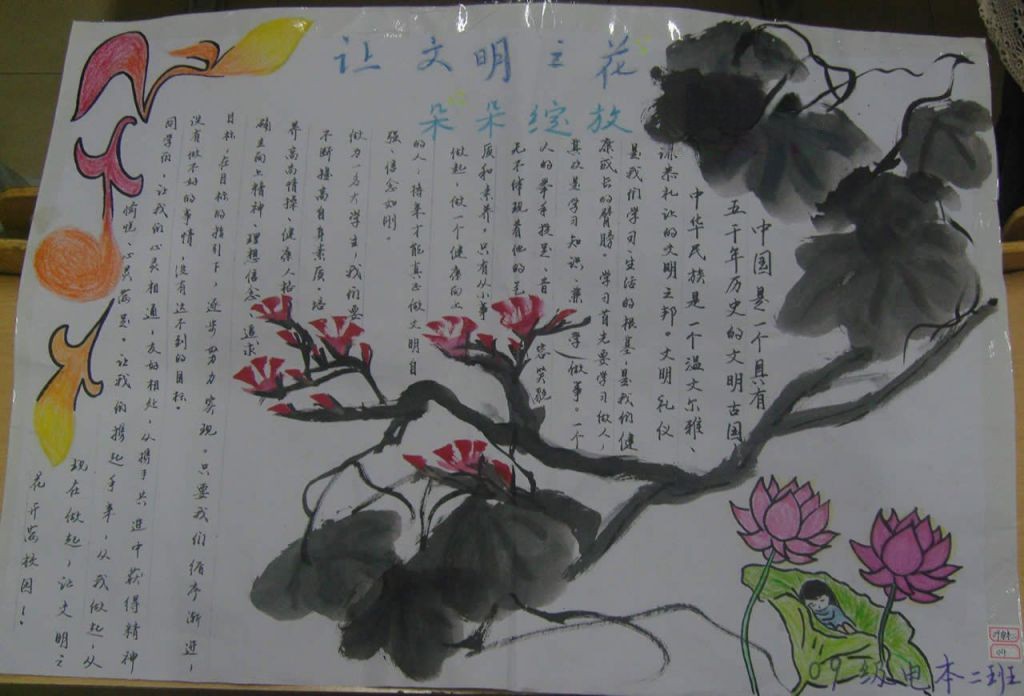 让文明之花
朵朵绽放
中国是一个具有
五千年历史的文明古国,
中华民族是一个温文尔雅、
谦恭礼让的文明之邦。文明礼仪
是我们学习、生活的根基,是我们健
康成长的臂膀。学习首先要学习做人,
其次是学习知识,兼学做事。一个
人的举手投足、音容笑貌
无不体现着他的气
质和素养。只有从小事
做起,做一个健康向上
的人,将来才能真正做文明自
强、信念如刚。
做为一名大学生,我们要
不断提高自身素质、培
养高尚情操、健康人格
确立向上精神、理想信念、追求
目标,在目标的指引下,逐步努力实现。只要我们循序渐进,
没有做不好的事情,没有达不到的目标。
同学们,让我们心灵相通,友好相处,从携手共进中获得精神
愉悦、心灵满足。让我们携起手来,从我做起,从
现在做起,让文明之
花开满校园!
09级电本二班